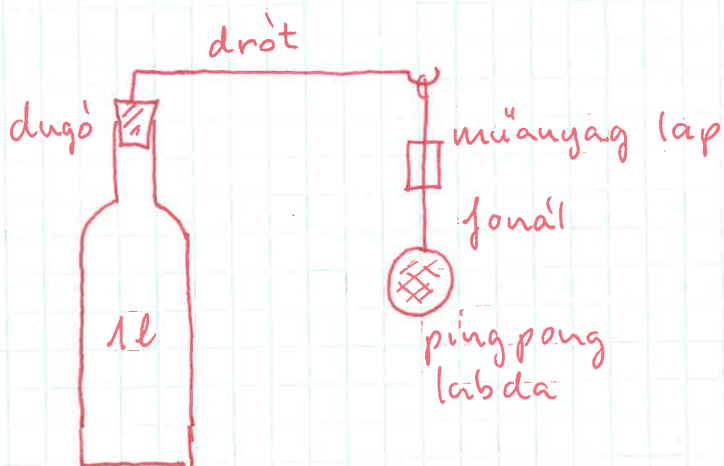 drót
dugó
műanyag lap
fonál
1l
pingpong
labda